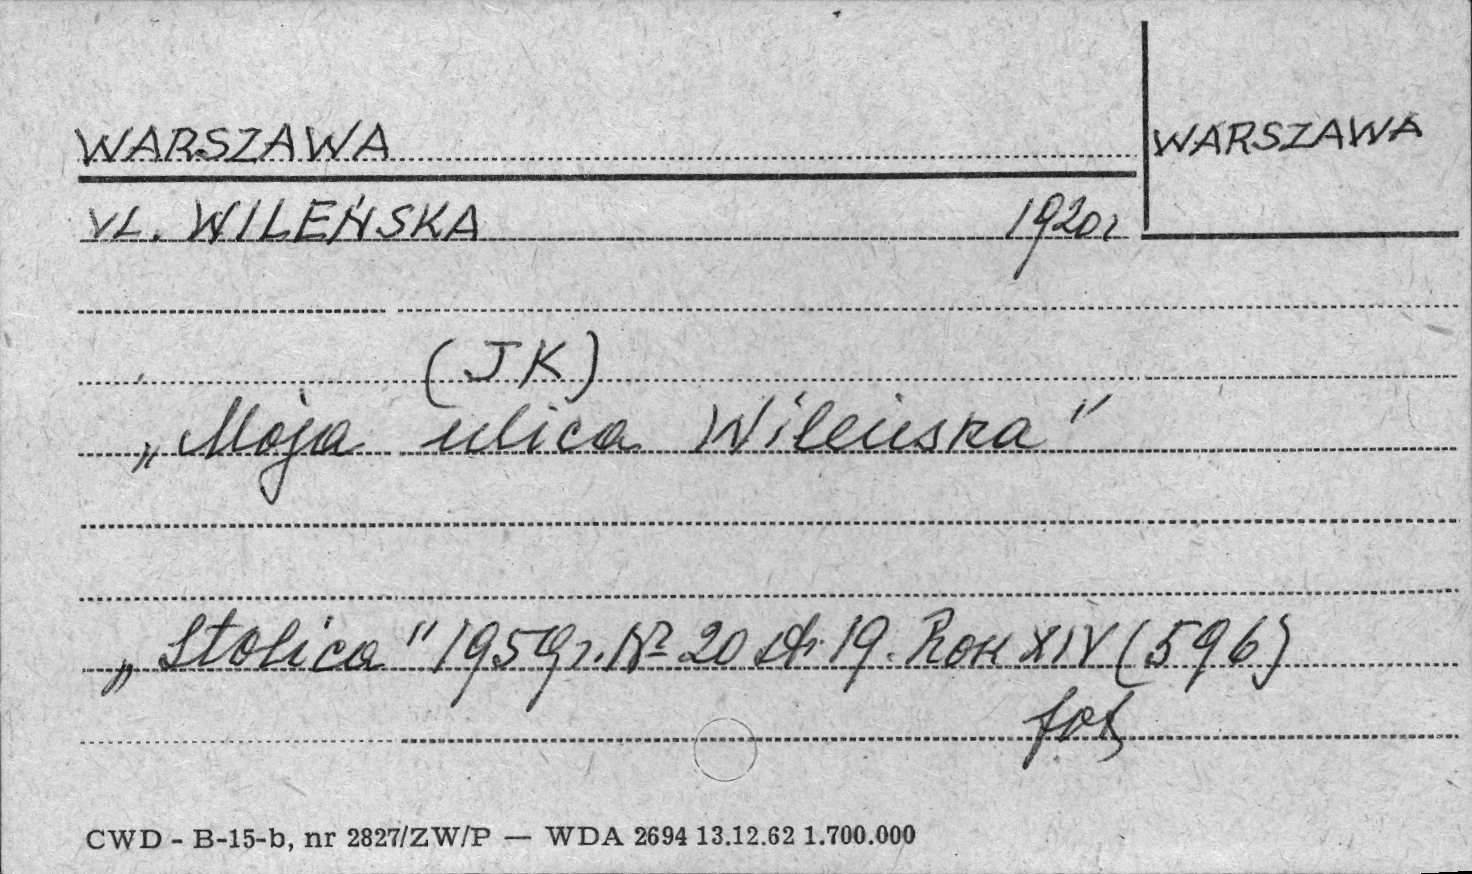 WARSZAWA
WARSZAWA
UL. WILEŃSKA 1920r
(JK)
„Moja ulica Wileńska"
„Stolica" 1959r. Nr 20 str. 19. Rok XIV (596)
fot
CWD - B-15-b, nr 2827/ZW/P — WDA 2694 13.12.62 1.700.000